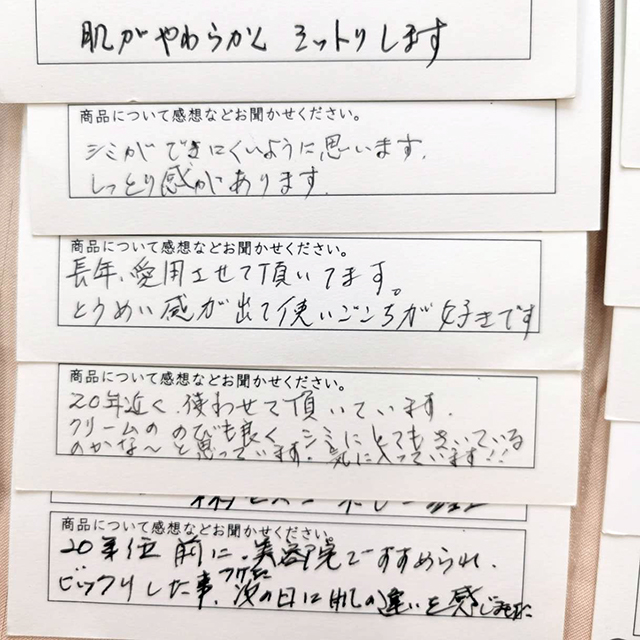 肌がやわらかく しっとりします
商品について感想などお聞かせください。
シミができにくいように思います。
しっとり感があります。
商品について感想などお聞かせください。
長年、愛用させて頂いてます。
とうめい感が出て使いごこちが好きです
商品について感想などお聞かせください。
20年近く、使わせて頂いています。
クリームの のびも良く シミにとてもきいている
のかな〜と思っています。気に入っています!!
商品について感想などお聞かせください。
20年位前に、美容院ですすめられ、
ビックリした事、つけた
次の日に肌の違いを感じました